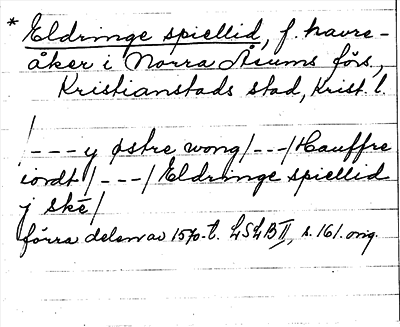 * Eldringe spiellid, f. havre-
åker i Norra Åsums förs.,
Kristianstads stad, Krist. l.
/---y østre wong/---/Hauffre
iordt/---/Eldringe spiellid
j Skē/
förra delen av 1570-t. LSLB II, s. 161. orig.